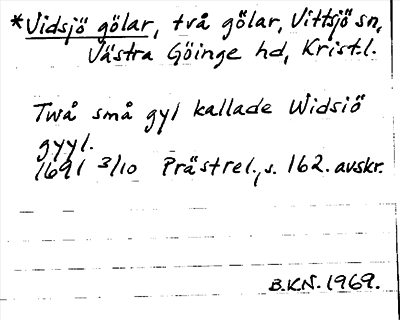 *Vidsjö gölar, två gölar, Vittsjö sn,
Västra Göinge hd, Krist.l.
Twå små gyl kallade Widsiö
gyyl.
1691 3/10 Prästrel., s. 162. avskr.
B.KN. 1969.